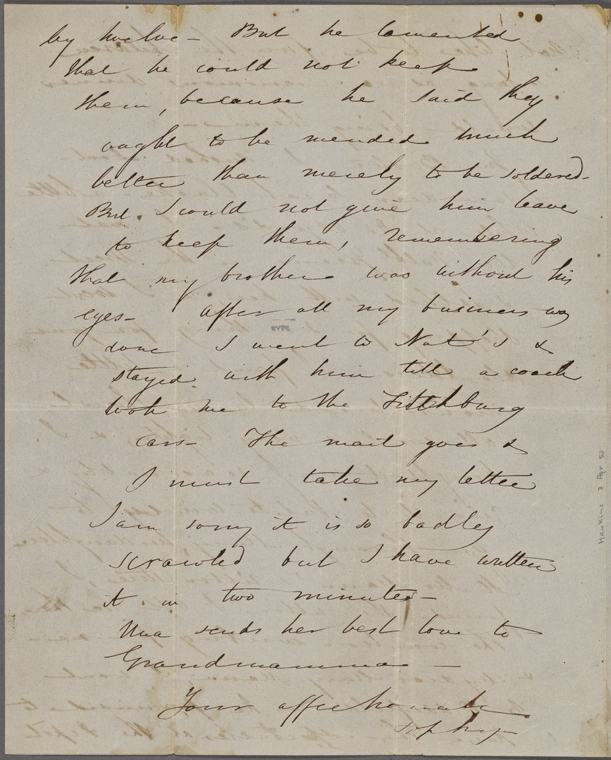 by twelve — But he lamented
that he could not keep
them, because he said they
ought to be mended much
better than merely to be soldered —
But I could not give him leave
to keep them, remembering
that my brother was without his
eyes — After all my business was
done I went to Nat's &
stayed with him till a coach
took me to the Fitchburg
cars — The mail goes &
I must take my letter
I am sorry it is so badly
scrawled but I have written
it in two minutes —
Una sends her best love to
Grandmamma —
Your affectionate
Sophy —